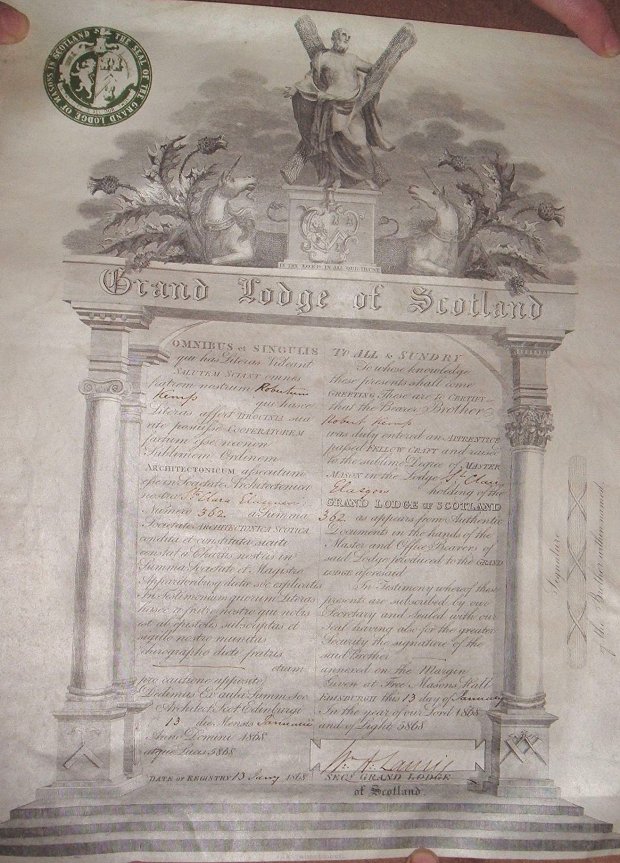 THE SEAL OF THE GRAND LODGE OF MASONS IN SCOTLAND
IN THE LORD IS ALL OUR TRUST
Grand Lodge of Scotland
OMNIBUS et SINGULIS
qui has Literas Videant
SALUTEM SCIANT omnes
fratrem nostrum Robertum
Kemp qui hasce
Literas affert TIROCINIA sua
rite posuisse COOPERATOREM
factum esse necnon
Sublimium Ordinem
ARCHITECTONICUM assecutum
esse in Societate Architectonica
nostra St. Clare Glasguae
Numero 362 a Summa
Societate ARCHITECTONICA SCOTICA
condita et constituta sicuti
constat a Chartis nostris in
Summa Societate et Magistro
Apparendisq dictae Soc explicatis
In Testimonium quorum Literas
hasce a fratre nostro qui nobis
est ab epistolis subscriptas et
sigillo nostro munitas
chirographo dicti fratris
etiam
pro cautione apposito
Dedimus Ex aula Summ Soc
Architect. Scot Edinburgi
13 die Mensis Januarii
Anno Domini 1868
atque Lucis 5868
DATE OF REGISTRY 13 Jany 1868
TO ALL & SUNDRY
To whose knowledge
these presents shall come
GREETING These are to CERTIFY
that the Bearer Brother
Robert Kemp
was duly entered an APPRENTICE
passed FELLOW CRAFT and raised
to the sublime Degree of MASTER
MASON in the Lodge St. Clair
Glasgow holding of the
GRAND LODGE OF SCOTLAND
362 as appears from Authentic
Documents in the hands of the
Master and Office Bearers of
said Lodge produced to the GRAND
LODGE aforesaid
In Testimony whereof these
present are subscribed by our
Secretary and Sealed with our
Seal having also for the greater
Security the signature of the
said Brother
annexed on the Margin
Given at Free Masons Hall
EDINBURGH this 13 day of January
In the year of our Lord 1868
and of Light 5868
SECY GRAND LODGE
of Scotland.
Signature
of the Brother withinnamed